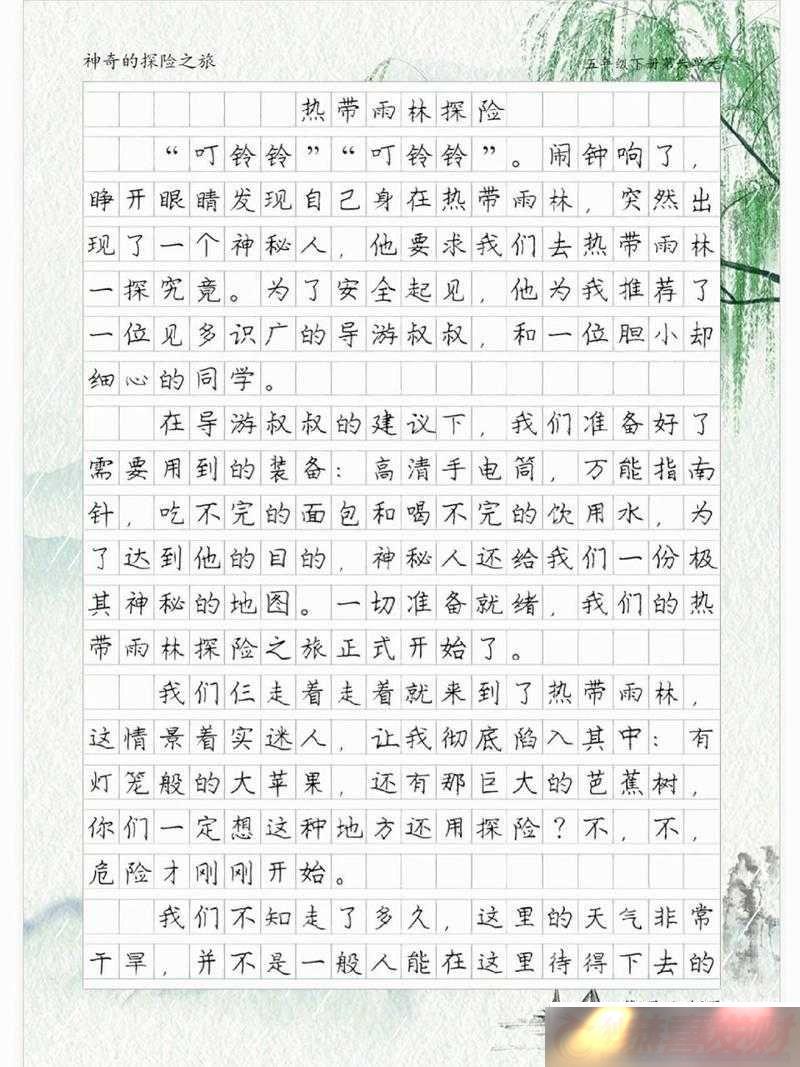 神奇的探险之旅
五年级下册第六单元
热带雨林探险
“叮铃铃”“叮铃铃”。闹钟响了，
睁开眼睛发现自己身在热带雨林，突然出
现了一个神秘人，他要求我们去热带雨林
一探究竟。为了安全起见，他为我推荐了
一位见多识广的导游叔叔，和一位胆小却
细心的同学。
在导游叔叔的建议下，我们准备好了
需要用到的装备：高清手电筒，万能指南
针，吃不完的面包和喝不完的饮用水，为
了达到他的目的，神秘人还给我们一份极
其神秘的地图。一切准备就绪，我们的热
带雨林探险之旅正式开始了。
我们仨走着走着就来到了热带雨林，
这情景着实迷人，让我彻底陷入其中：有
灯笼般的大苹果，还有那巨大的芭蕉树，
你们一定想这种地方还用探险？不，不，
危险才刚刚开始。
我们不知走了多久，这里的天气非常
干旱，并不是一般人能在这里待得下去的